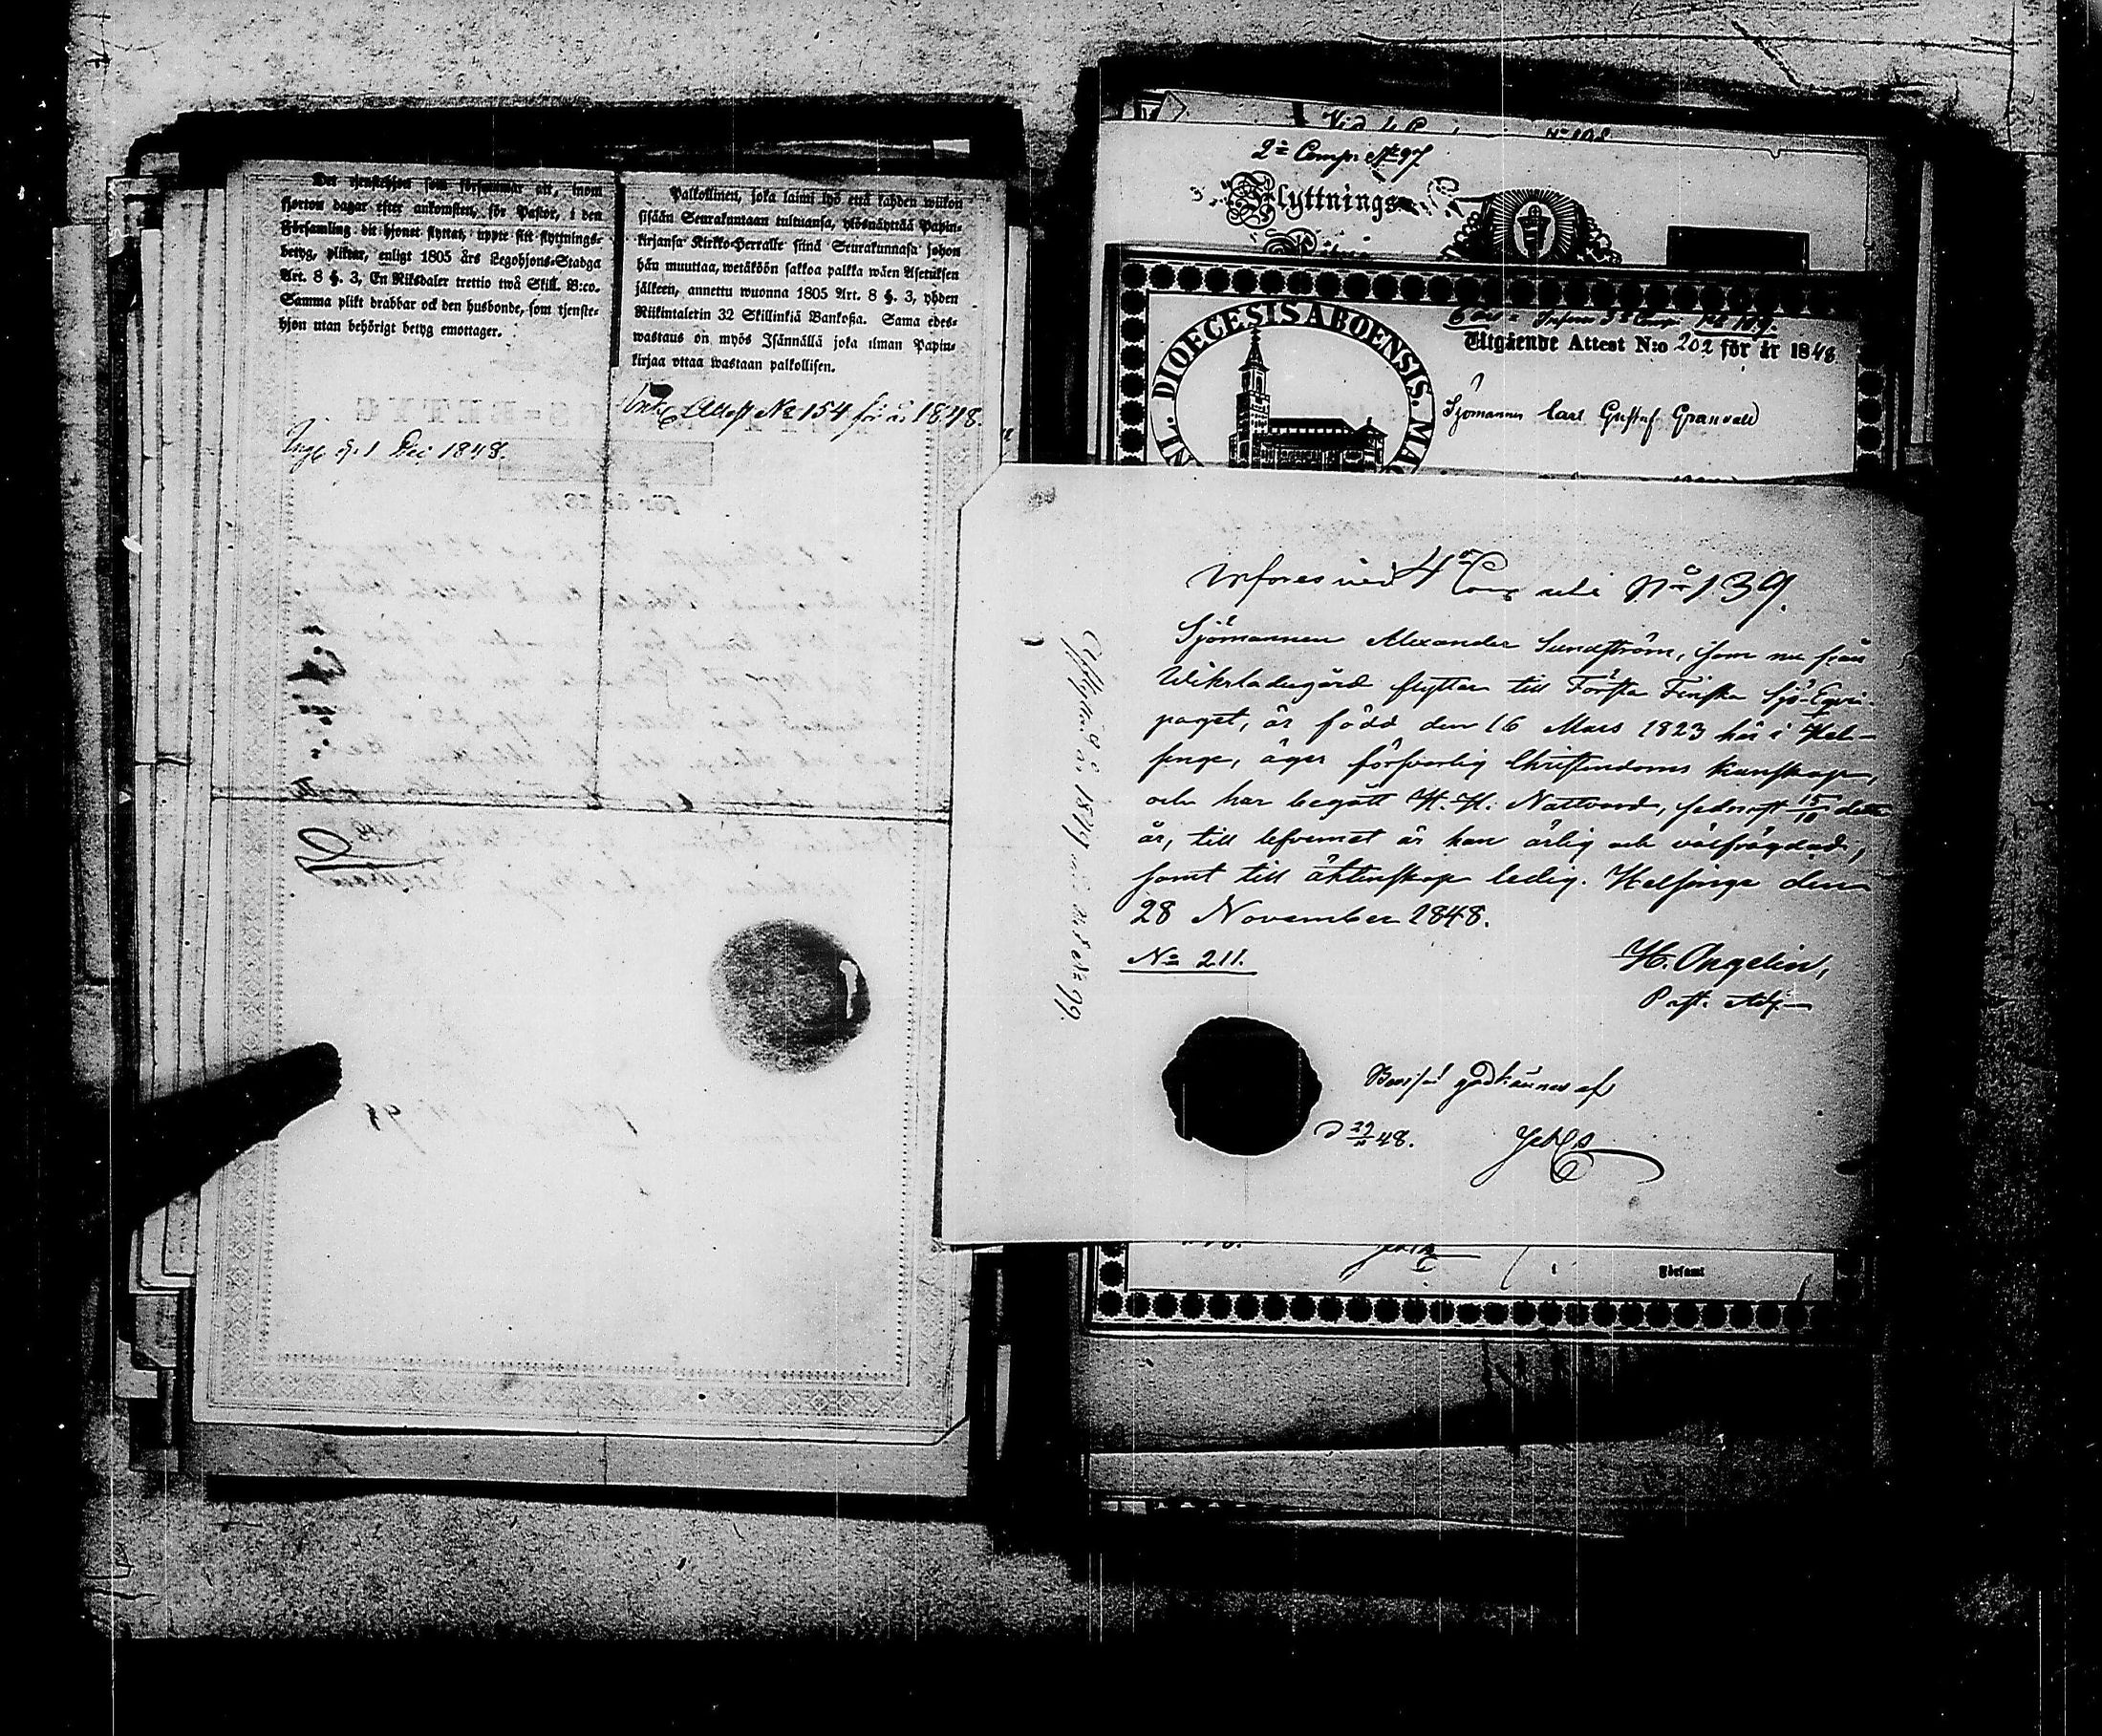 Det tjenstehjon som försummar att, inom
fjorton dagar efter ankomsten, för Pastor, i den
Församling dit hjonet flyttat, uppte sitt flyttnings-
betyg, pliktar, enligt 1805 års Legohjons-Stadga
Art. 8 §. 3, En Riksdaler trettio twå Skill. B:co.
Samma plikt drabbar ock den husbonde, som tjenste-
hjon utan behörigt betyg emottager.
Palkollinen, joka laimi lyö että kahden wiikon
sisään Seurakuntaan tultuansa, ylösnäyttää Papin-
kirjansa Kirkko-Herralle siinä Seurakunnasa johon
hän muuttaa, wetäköön sakkoa palkka wäen Asetuksen
jälkeen, annettu wuonna 1805 Art. 8 §. 3, yhden
Riikintalerin 32 Skillinkiä Bankosa. Sama edes-
wastaus on myös Isännällä joka ilman Papin-
kirjaa ottaa wastaan palkollisen.
Attest No 154 för år 1848.
d. 1 Dec 1848.
2a Comp. No 97
Flyttnings
DIOECESIS ABOENSIS.
No 109.
Utgående Attest N:o 202 för år 1848
Sjömannen Carl Gustaf Granvald
Införes vid 4de Comp No 139.
Sjömannen Alexander Sundström, som nu från
Wiksladugård flyttar till Första Finska Sjö-Eqvi-
paget, är född den 16 Mars 1823 här i Hel-
singe, äger försvarlig Christendoms kunskap,
och har begått H. H. Nattvard, sednast 15/10 detta
år, till lefvernet är han ärlig och välfrägdad,
samt till äktenskap ledig. Helsinge den
28 November 1848.
No 211.
H. Ongelin,
Past. Adj.
godkännes af
d 29/11 48.
Församl